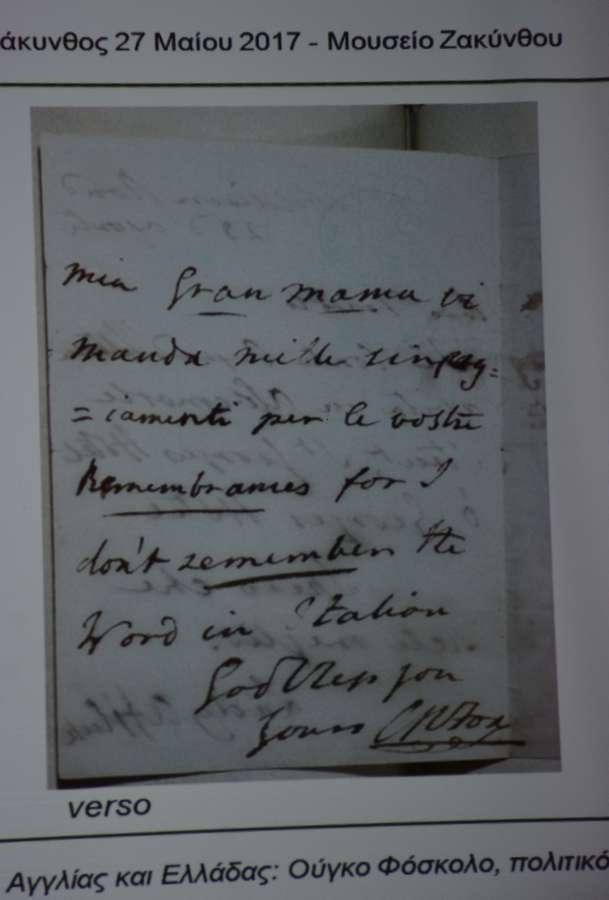 άκυνθος 27 Μαίου 2017 - Μουσείο Ζακύνθου
mia Gran mama vi
manda mille
=iamenti per le vostre
Remembrances for I
don't remember the
Word in Italian
God bless you
yours CRFox
verso
Αγγλίας και Ελλάδας: Ούγκο Φόσκολο, πολιτικό